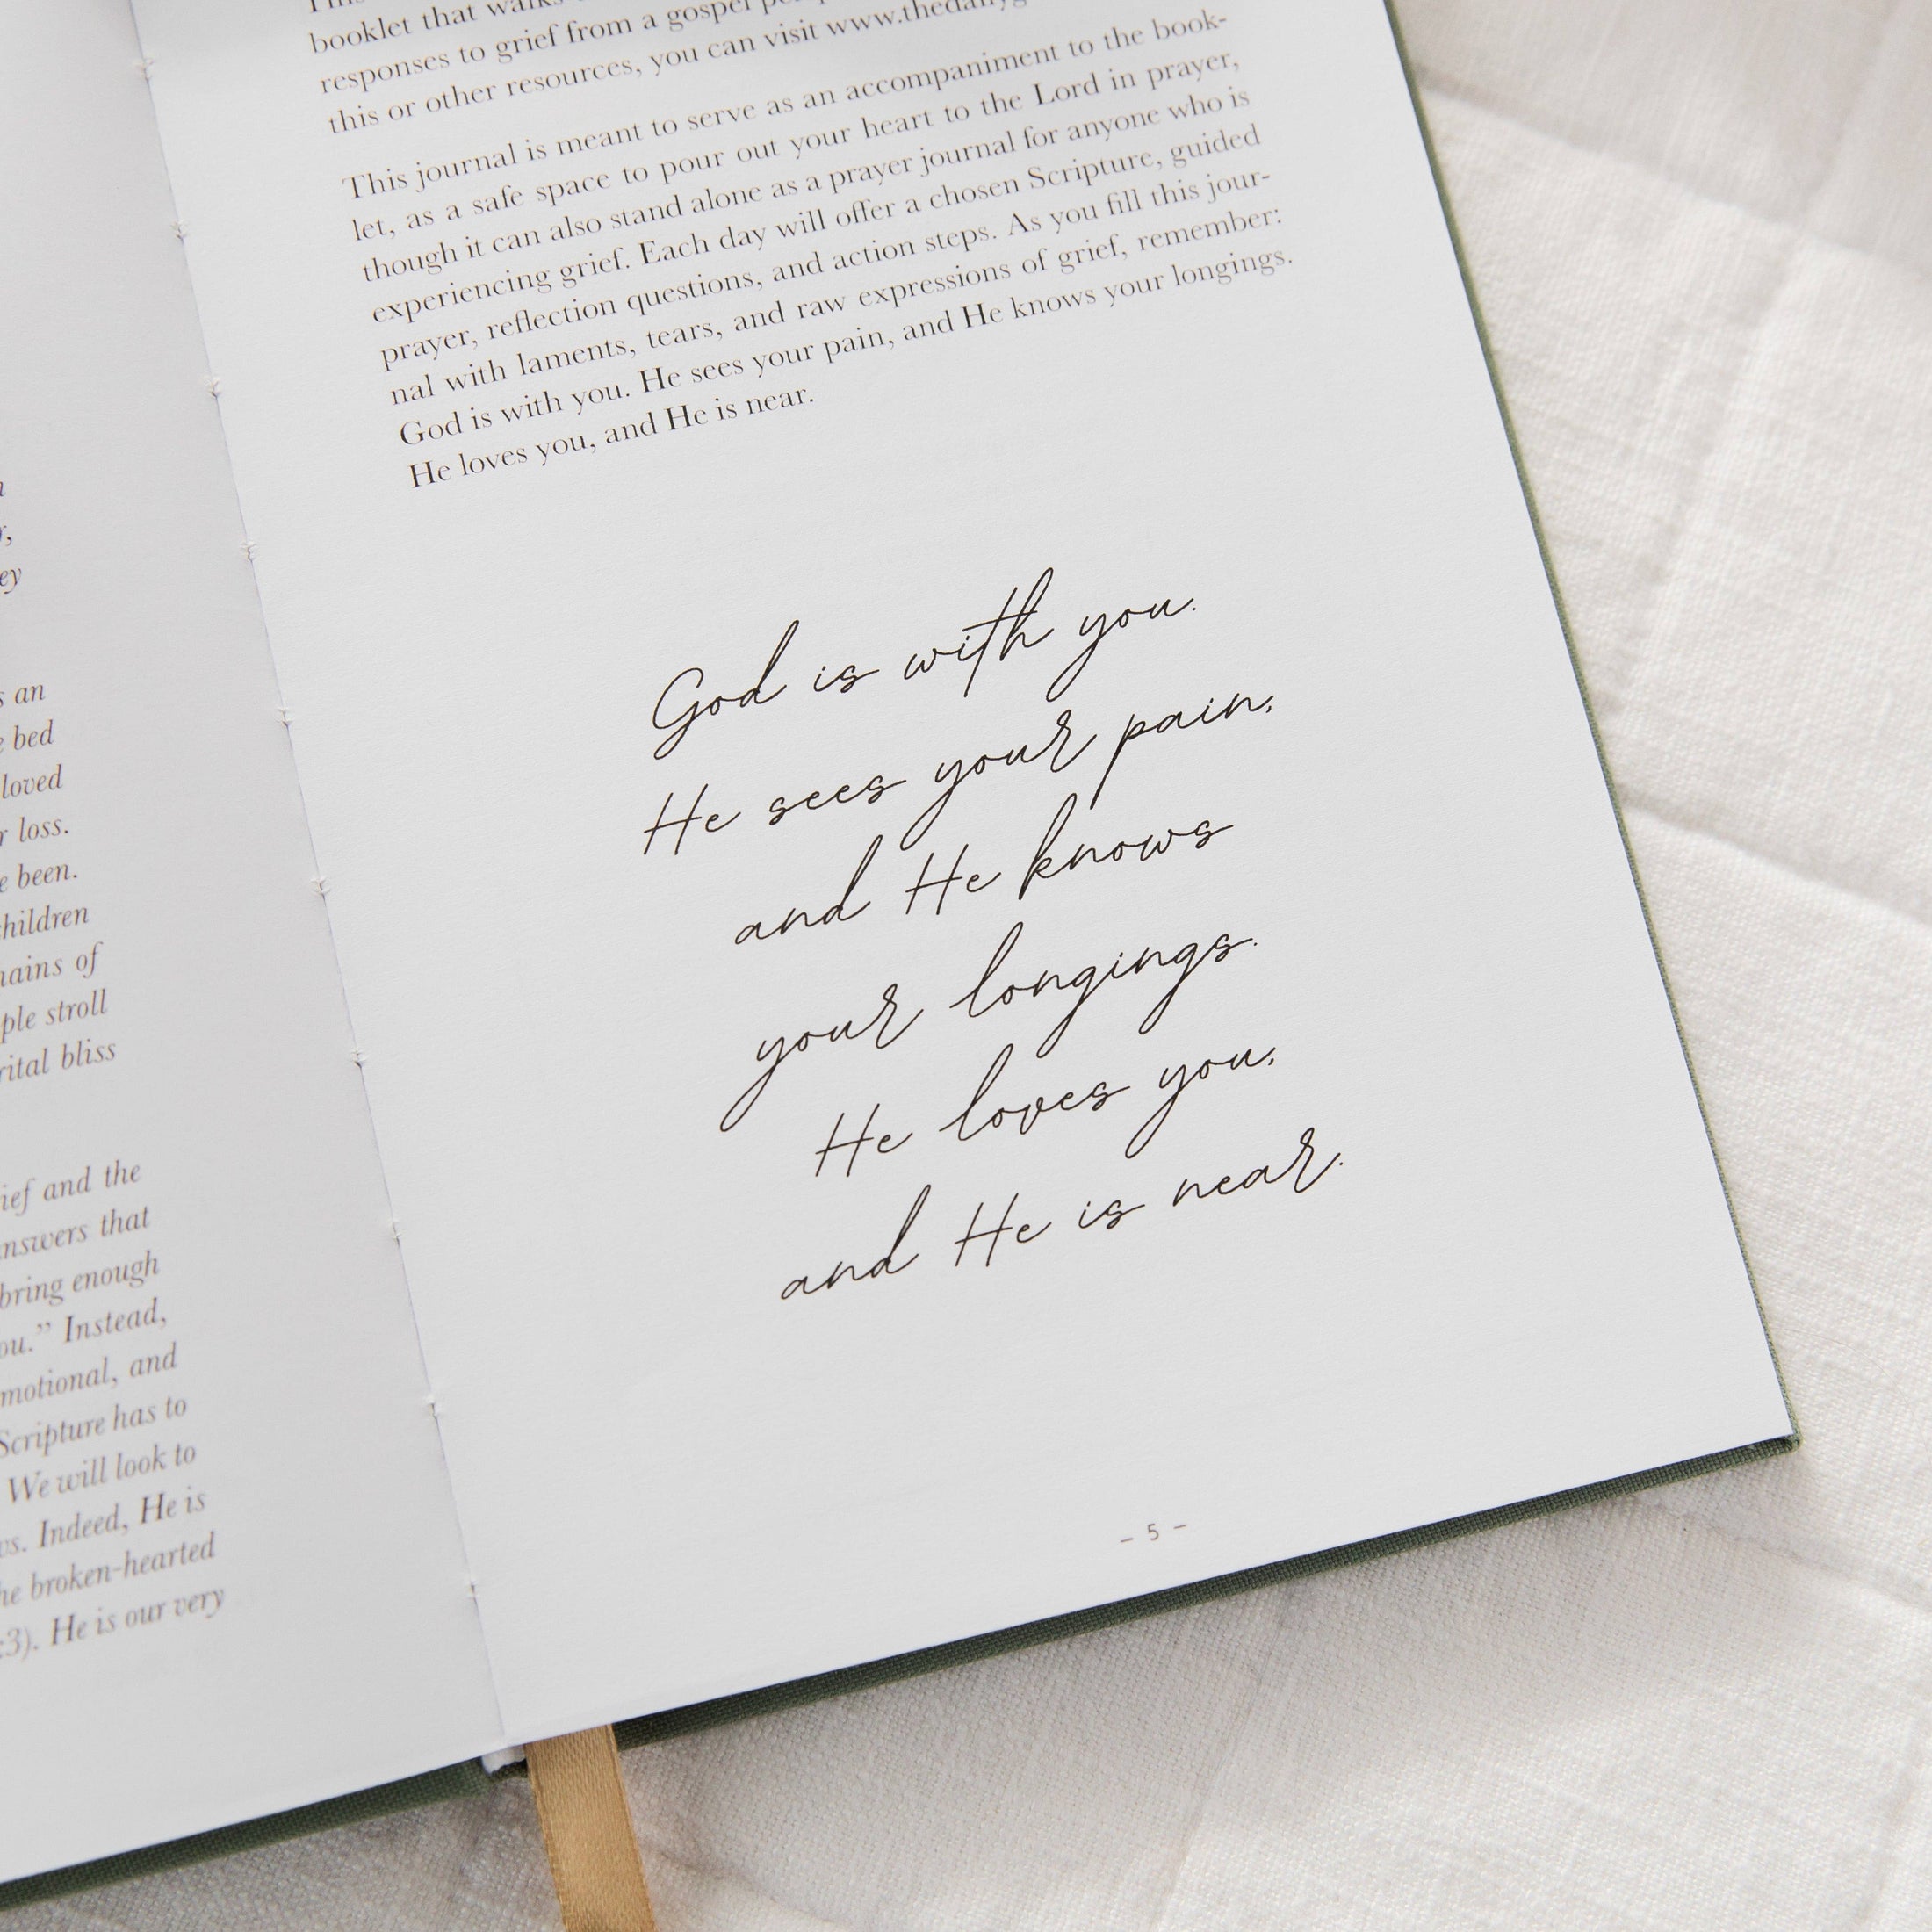 s an
bed
loved
loss.
been.
children
of
stroll
bliss
and the
answers that
bring enough
Instead,
and
Scripture has to
We will look to
Indeed, He is
broken-hearted
:3). He is our very
booklet that
responses to grief from a gospel
this or other resources, you can visit
This journal is meant to serve as an accompaniment to the book-
let, as a safe space to pour out your heart to the Lord in prayer,
though it can also stand alone as a prayer journal for anyone who is
experiencing grief. Each day will offer a chosen Scripture, guided
prayer, reflection questions, and action steps. As you fill this jour-
nal with laments, tears, and raw expressions of grief, remember:
God is with you. He sees your pain, and He knows your longings.
He loves you, and He is near.
God is with you.
He sees your pain,
and He knows
your longings.
He loves you,
and He is near.
– 5 –